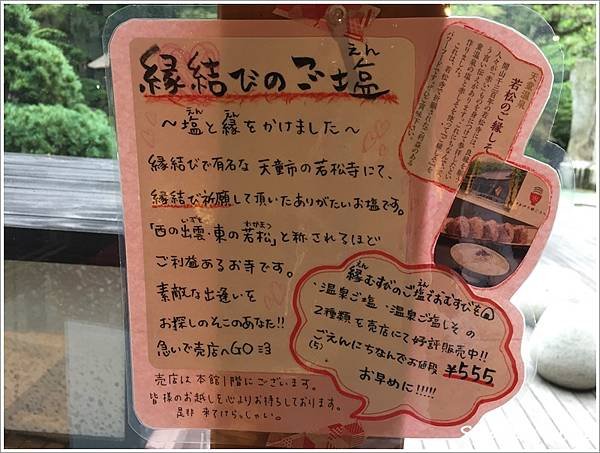 縁結びのご塩
えん
～塩と縁をかけました～
えん えん
縁結びで有名な 天童市の若松寺にて、
縁結び祈願して頂いたありがたいお塩です。
「西の出雲・東の若松」と称されるほど
いずも わかまつ
ご利益あるお寺です。
素敵な出逢いを
お探しのそこのあなた!!
急いで売店へGO
売店は本館1階にございます。
皆様のお越しを心よりお待ちしております。
是非 来てけらっしゃい。
縁むすびのご塩でおむすびを
えん えん
・温泉ご塩 ・温泉ご塩しその
2種類を売店にて好評販売中!!
ごえんにちなんでお値段 ¥555
(5)
お早めに!!!!!
天童温泉
若松のご縁しそ